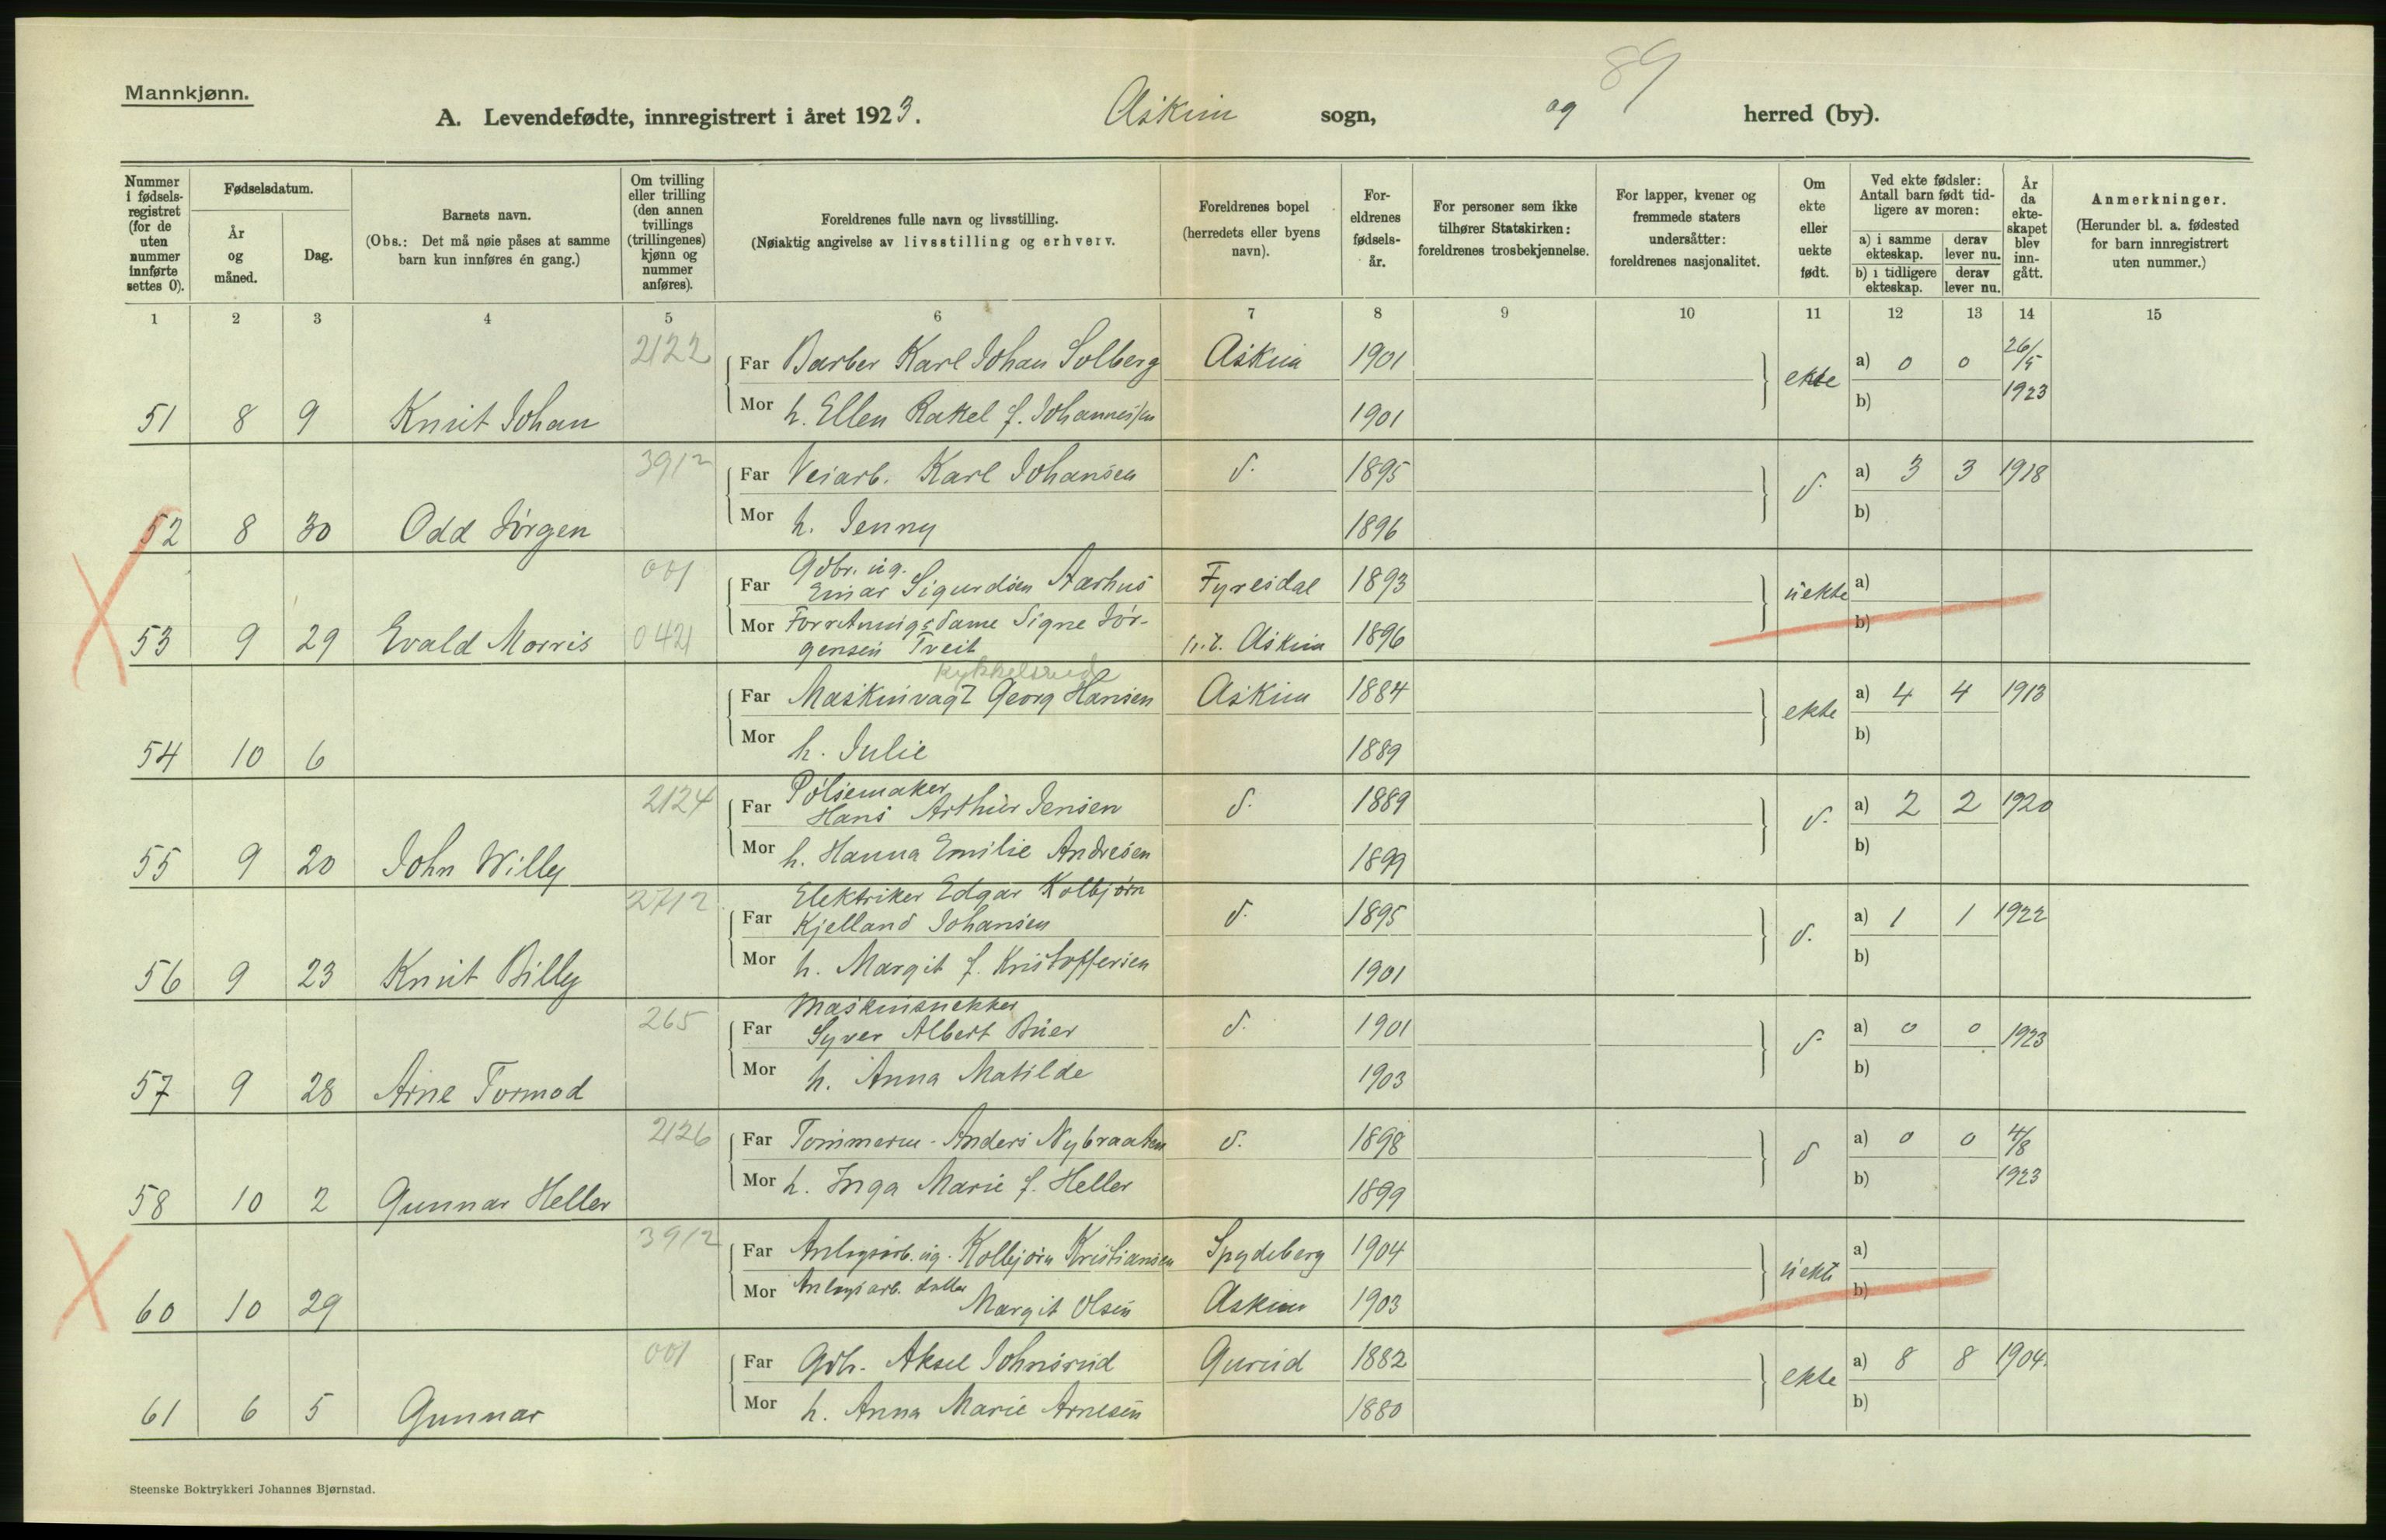 89
Mannkjønn.
A. Levendefødte, innregistrert i året 1923. Askim sogn, og herred (by).
Nummer i fødsels-registret (for de uten nummer innførte settes 0).
Fødselsdatum.
År og måned.
Dag.
Barnets navn.
(Obs.: Det må nøie påses at samme barn kun innføres én gang.)
Om tvilling eller trilling (den annen tvillings (trillingenes) kjønn og nummer anføres).
Foreldrenes fulle navn og livsstilling.
(Nøiaktig angivelse av livsstilling og erhverv.
Foreldrenes bopel (herredets eller byens navn).
For-eldrenes fødsels-år.
For personer som ikke tilhører Statskirken: foreldrenes trosbekjennelse.
For lapper, kvener og fremmede staters undersåtter: foreldrenes nasjonalitet.
Om ekte eller uekte født.
Ved ekte fødsler: Antall barn født tid-ligere av moren:
a) i samme ekteskap. derav lever nu.
b) i tidligere ekteskap. derav lever nu.
År da ekte-skapet blev inn-gått.
Anmerkninger.
(Herunder bl. a. fødested for barn innregistrert uten nummer.)
1 2 3 4 5 6 7 8 9 10 11 12 13 14 15
2122 Far Barber Karl Johan Solberg Askim 1901 ekte a) 0 0 26/5 1923
51 8 9 Knut Johan Mor h. Ellen Rakel f. Johannessen 1901 b)
3912 Far Veiarb. Karl Johansen d. 1895 d. a) 3 3 1918
52 8 30 Odd Jörgen Mor h. Jenny 1896 b)
001 Far Gdbr. ug. Einar Sigurdsen Aarhus Fyresdal 1893 uekte a)
53 9 29 Evald Morris 042 Mor Forretningsdame Signe Jör-gensen Tveit Askim 1896 b)
Kykkelsrud
Far Maskinvagt Georg Hansen Askim 1884 ekte a) 4 4 1913
54 10 6 Mor h. Julie 1889 b)
2124 Far Pölsemaker Hans Arthur Jensen d. 1889 d. a) 2 2 1920
55 9 20 John Willy Mor h. Hanna Emilie Andresen 1899 b)
2712 Far Elektriker Edgar Kolbjørn Kjelland Johansen d. 1895 d. a) 1 1 1922
56 9 23 Knut Billy Mor h. Margit f. Kristoffersen 1901 b)
265 Far Maskinsnekker Syver Albert Buer d. 1901 d. a) 0 0 1923
57 9 28 Arne Tormod Mor h. Anna Matilde 1903 b)
2126 Far Tömmerm. Anders Nybraaten d. 1898 d a) 0 0 4/8 1923
58 10 2 Gunnar Heller Mor h. Inga Marie f. Heller 1899 b)
3912 Far Anlegsarb. ug. Kolbjørn Kristiansen Spydeberg 1904 uekte a)
60 10 29 Mor Anlegsarb. datter Margit Olsen Askim 1903 b)
001 Far Gdbr. Aksel Johnsrud 1882 ekte a) 8 8 1904
61 6 5 Gunnar Mor h. Anna Marie Arnesen 1880 b)
Steenske Boktrykkeri Johannes Bjørnstad.